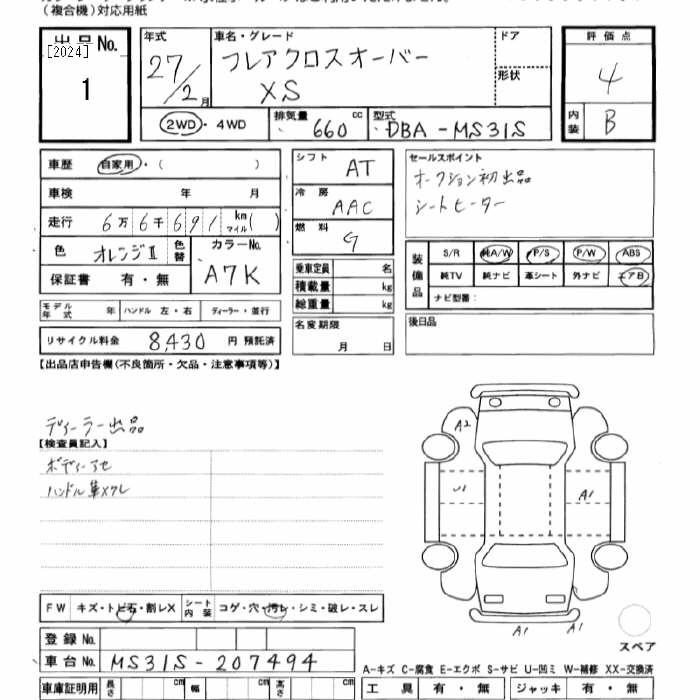 (複合機)対応用紙
出品No.
[2024]
1
年式
27/2月
車名・グレード
フレアクロスオーバー
XS
ドア
形状
評価点
4
内装
B
2WD・4WD
排気量
660
cc
型式
DBA-MS31S
車歴
自家用・( )
車検 年 月
走行 6万6千691 km マイル( )
色 オレンジⅡ 色替
カラーNo.
A7K
保証書 有・無
モデル年式 年 ハンドル 左・右 ディーラー・並行
リサイクル料金 8,430 円 預託済
シフト AT
冷房 AAC
燃料 G
乗車定員 名
積載量 kg
総重量 kg
名変期限
月 日
セールスポイント
オークション初出品
シートヒーター
装備品
S/R 純A/W P/S P/W ABS
純TV 純ナビ 革シート 外ナビ エアB
ナビ型番:
後日品
【出品店申告欄(不良箇所・欠品・注意事項等)】
ディーラー出品
【検査員記入】
ボディーアセ
ハンドル革スレ
FW キズ・トビ石・割レX シート内装 コゲ・穴・汚レ・シミ・破レ・スレ
登録No.
車台No. MS31S-207494
車庫証明用 長さ cm 幅 cm 高さ cm
A2
U1
A1
A1 A1
スペア
A-キズ C-腐食 E-エクボ S-サビ U-凹ミ W-補修 XX-交換済
工具 有・無 ジャッキ 有・無